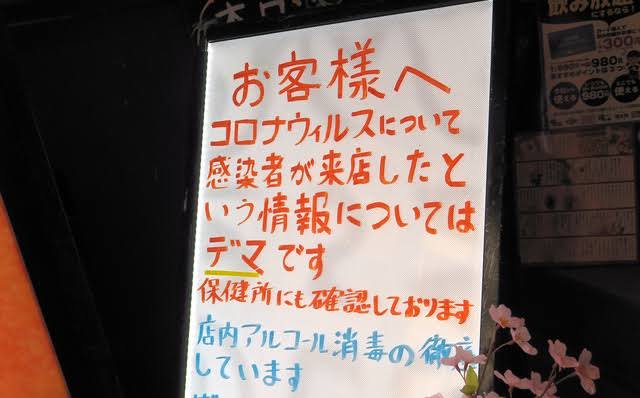 お客様へ
コロナウィルスについて
感染者が来店したと
いう情報については
デマです
保健所にも確認しております
店内アルコール消毒の徹
しています
飲み放題
300
980
980円